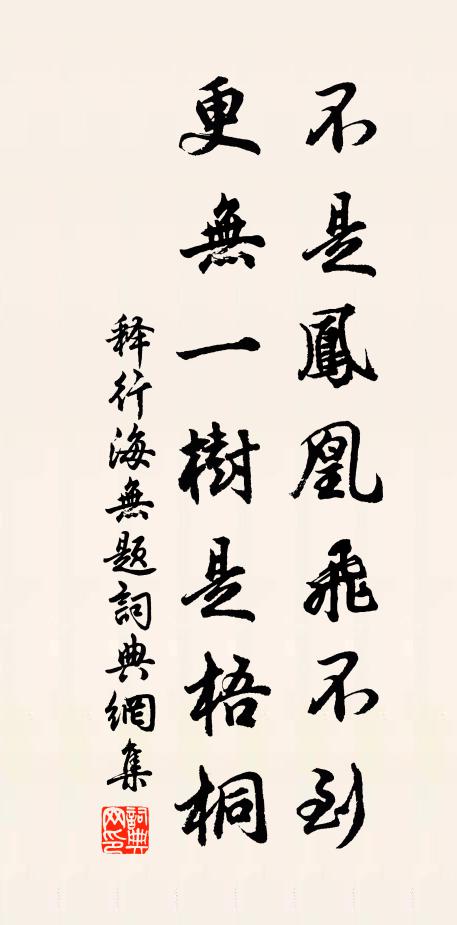 不是鳳凰飛不到
更無一樹是梧桐
释行海無题詞典網集
詞典
网印